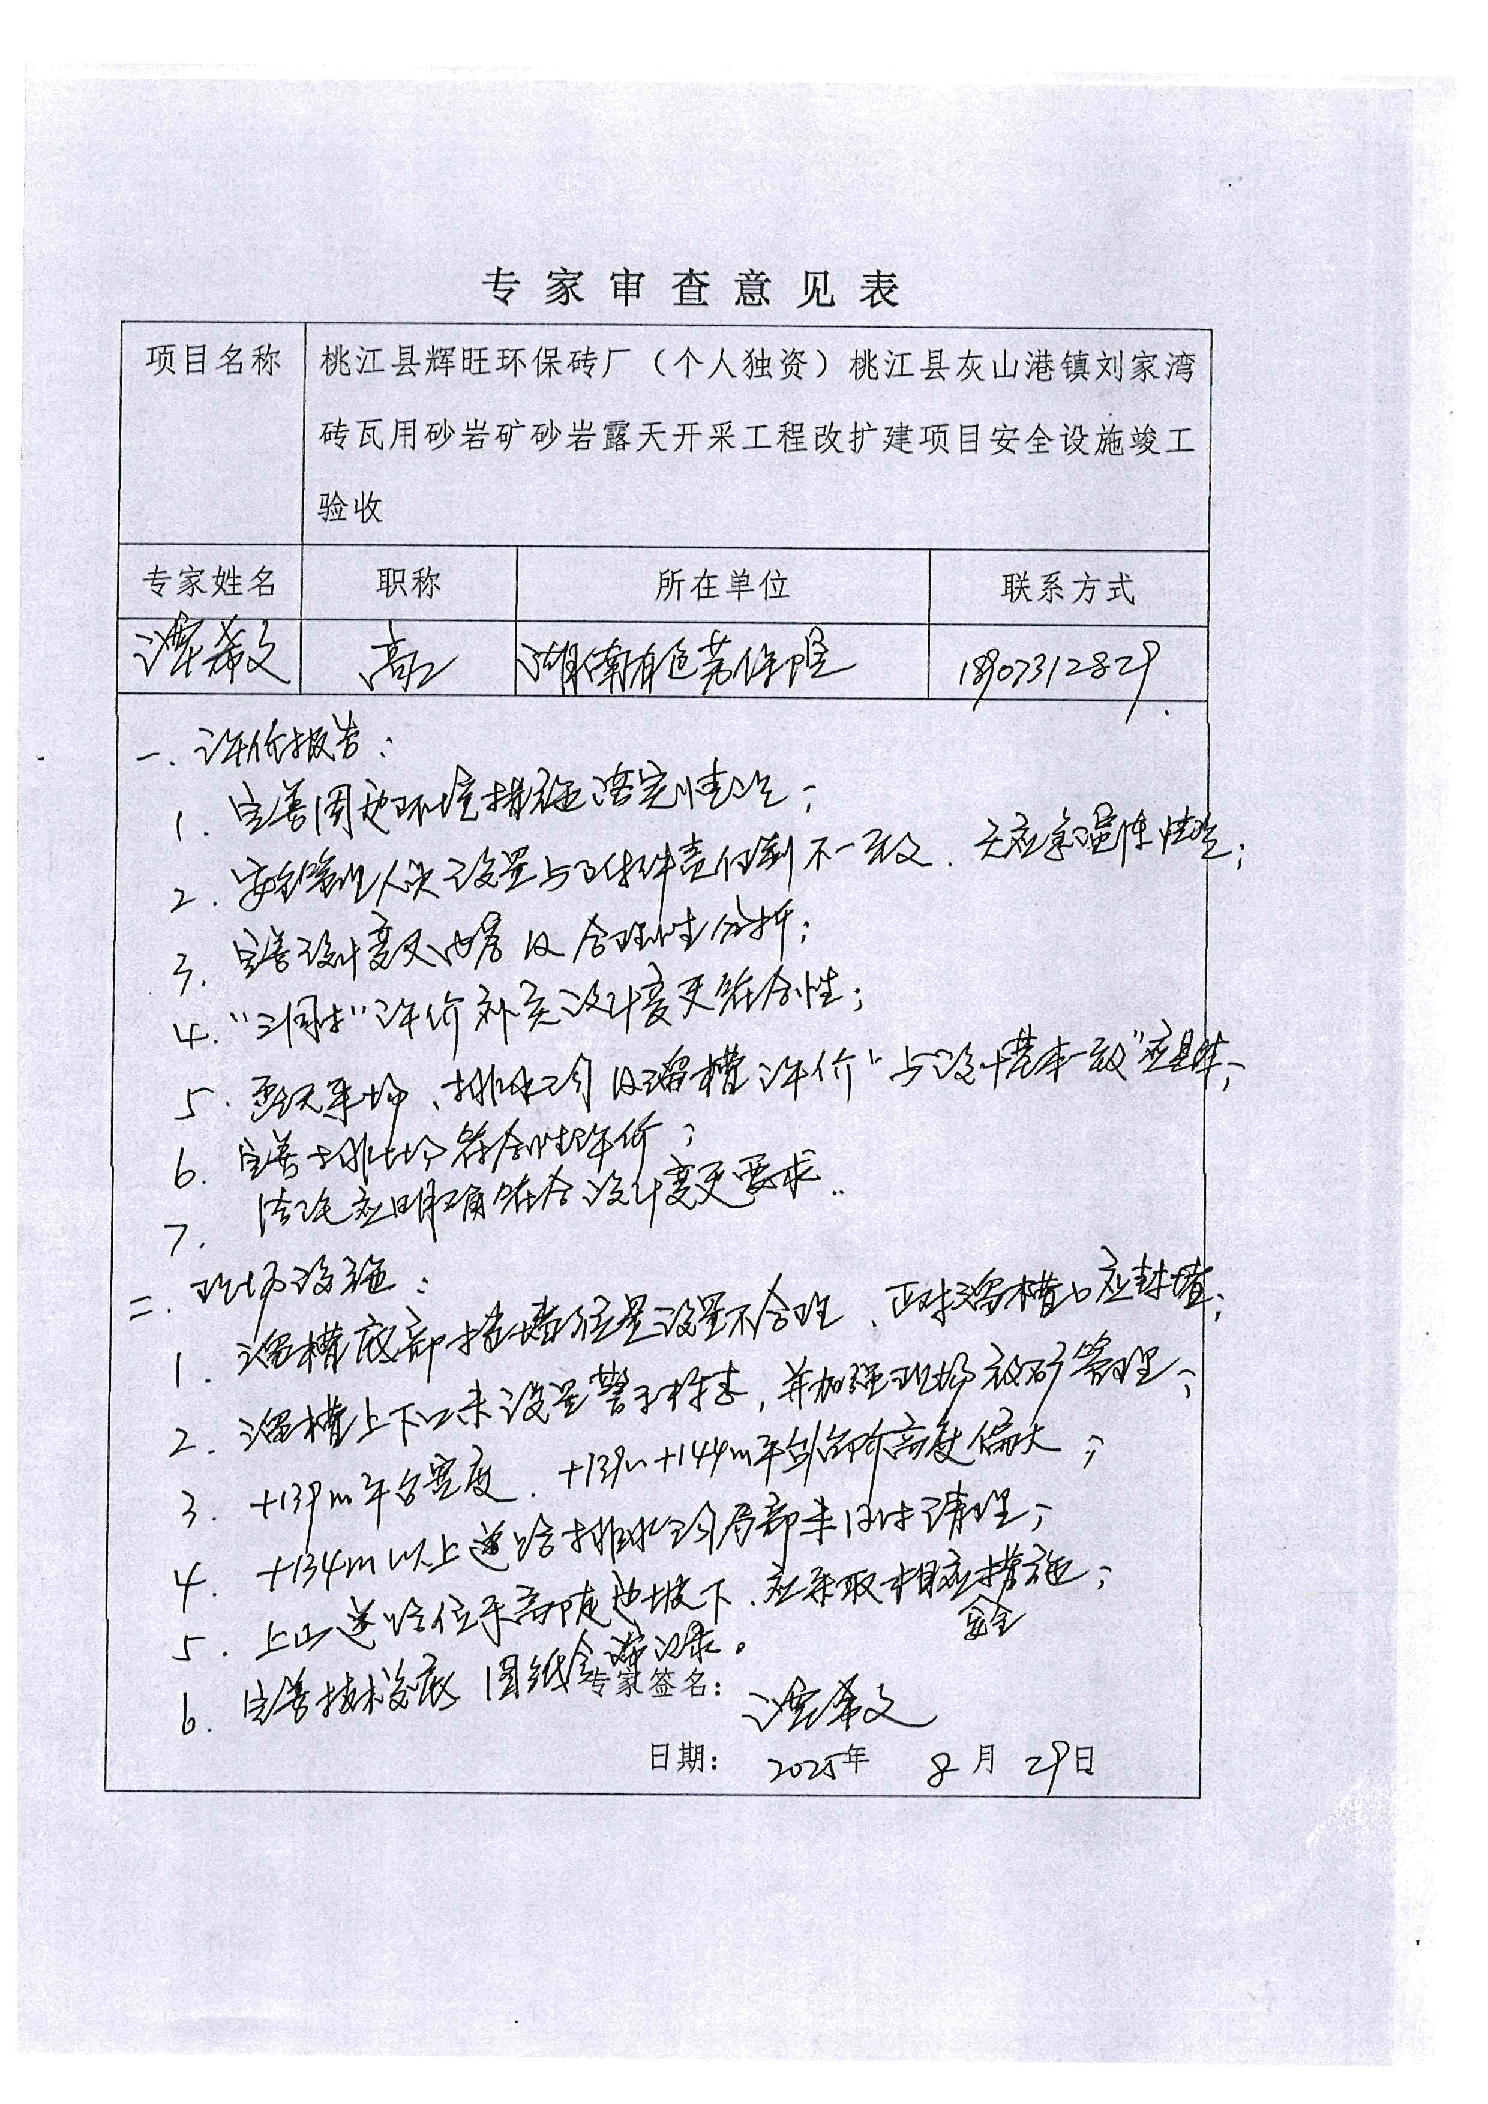 专家审查意见表
项目名称
桃江县辉旺环保砖厂（个人独资）桃江县灰山港镇刘家湾
砖瓦用砂岩矿砂岩露天开采工程改扩建项目安全设施竣工
验收
专家姓名 职称 所在单位 联系方式
谭希文 高工 湖南有色劳保院 18907312829
一、评价报告：
1. 完善周边环境措施落实情况；
2. 安全管理人员设置与附件责任制不一致、无应急演练情况；
3. 完善设计变更内容及合理性分析；
4. "三同时"评价补充设计变更符合性；
5. 露天采场、排水沟及溜槽评价"与设计基本一致"应具体；
6. 完善排土场符合性评价；
7. 结论应明确符合设计变更要求。
二、现场设施：
1. 溜槽底部挡墙位置设置不合理、正对溜槽口应封堵；
2. 溜槽上下口未设置警示标志，并加强现场放矿管理；
3. +139m平台宽度、+139m+144m平台台阶高度偏大；
4. +134m以上道路排水沟局部未及时清理；
5. 上山道路位于高陡边坡下、应采取相应安全措施；
6. 完善技术交底、图纸会审记录。
专家签名：谭希文
日期： 2025年 8月 29日